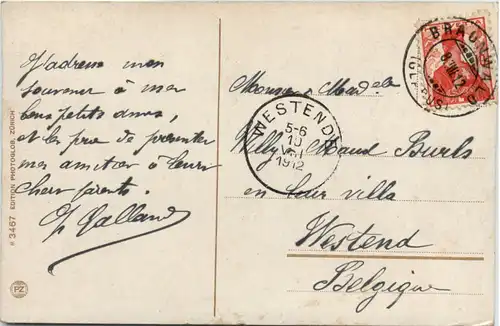 J'adresse mon
souvenir à mes
bons petits amis,
et les prie de présenter
mes amitiés à leurs
chers parents.
G Galland
№ 3467 EDITION PHOTOGLOB, ZÜRICH
PZ
BRAUNWALD
8.VII.12
WESTENDE
5-6
10
VII
1912
Monsieur & Mad
Willy & Maud Burls
en leur villa
Westend
Belgique